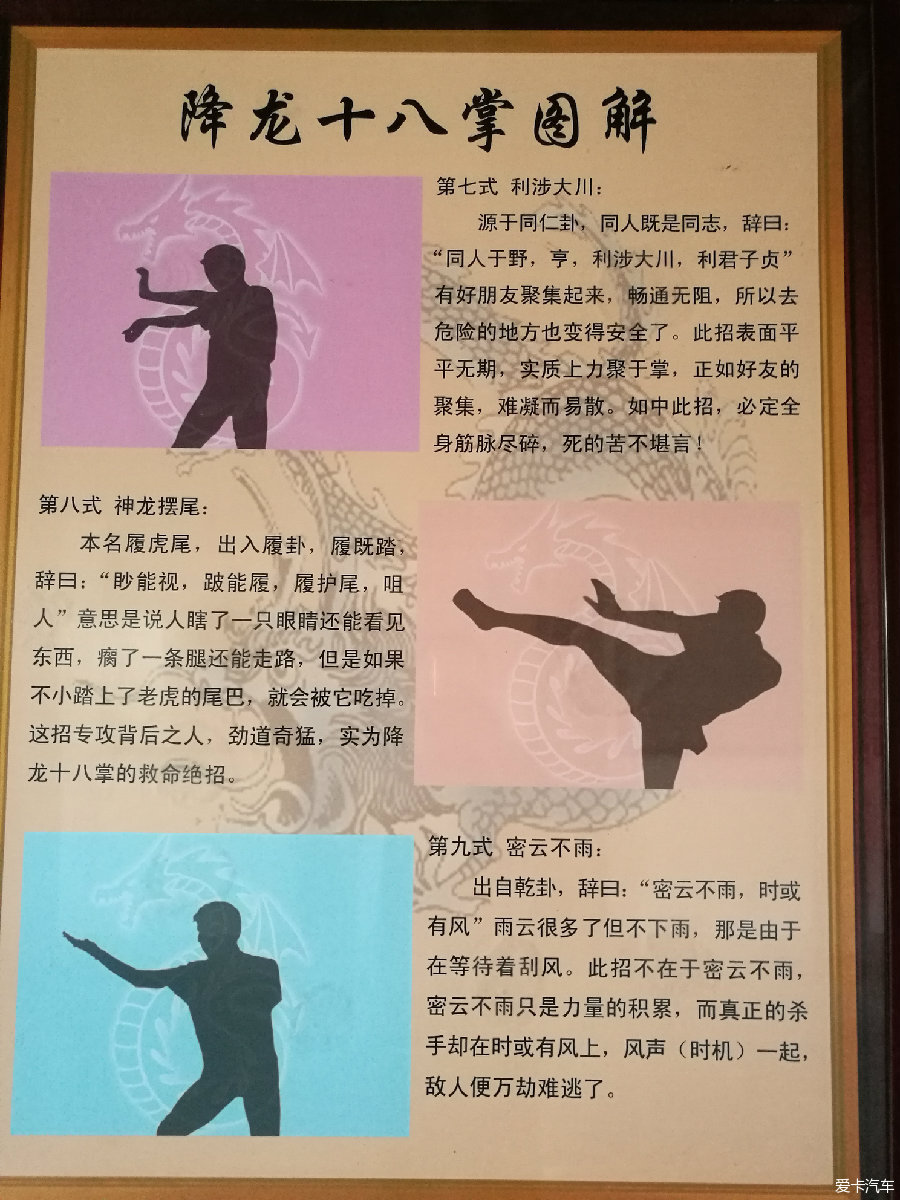 降龙十八掌图解
第七式 利涉大川:
源于同仁卦，同人既是同志，辞曰:
“同人于野，亨，利涉大川，利君子贞”
有好朋友聚集起来，畅通无阻，所以去
危险的地方也变得安全了。此招表面平
平无期，实质上力聚于掌，正如好友的
聚集，难凝而易散。如中此招，必定全
身筋脉尽碎，死的苦不堪言！
第八式 神龙摆尾:
本名履虎尾，出入履卦，履既踏，
辞曰:“眇能视，跛能履，履护尾，咀
人”意思是说人瞎了一只眼睛还能看见
东西，瘸了一条腿还能走路，但是如果
不小踏上了老虎的尾巴，就会被它吃掉。
这招专攻背后之人，劲道奇猛，实为降
龙十八掌的救命绝招。
第九式 密云不雨:
出自乾卦，辞曰:“密云不雨，时或
有风”雨云很多了但不下雨，那是由于
在等待着刮风。此招不在于密云不雨，
密云不雨只是力量的积累，而真正的杀
手却在时或有风上，风声（时机）一起，
敌人便万劫难逃了。
爱卡汽车